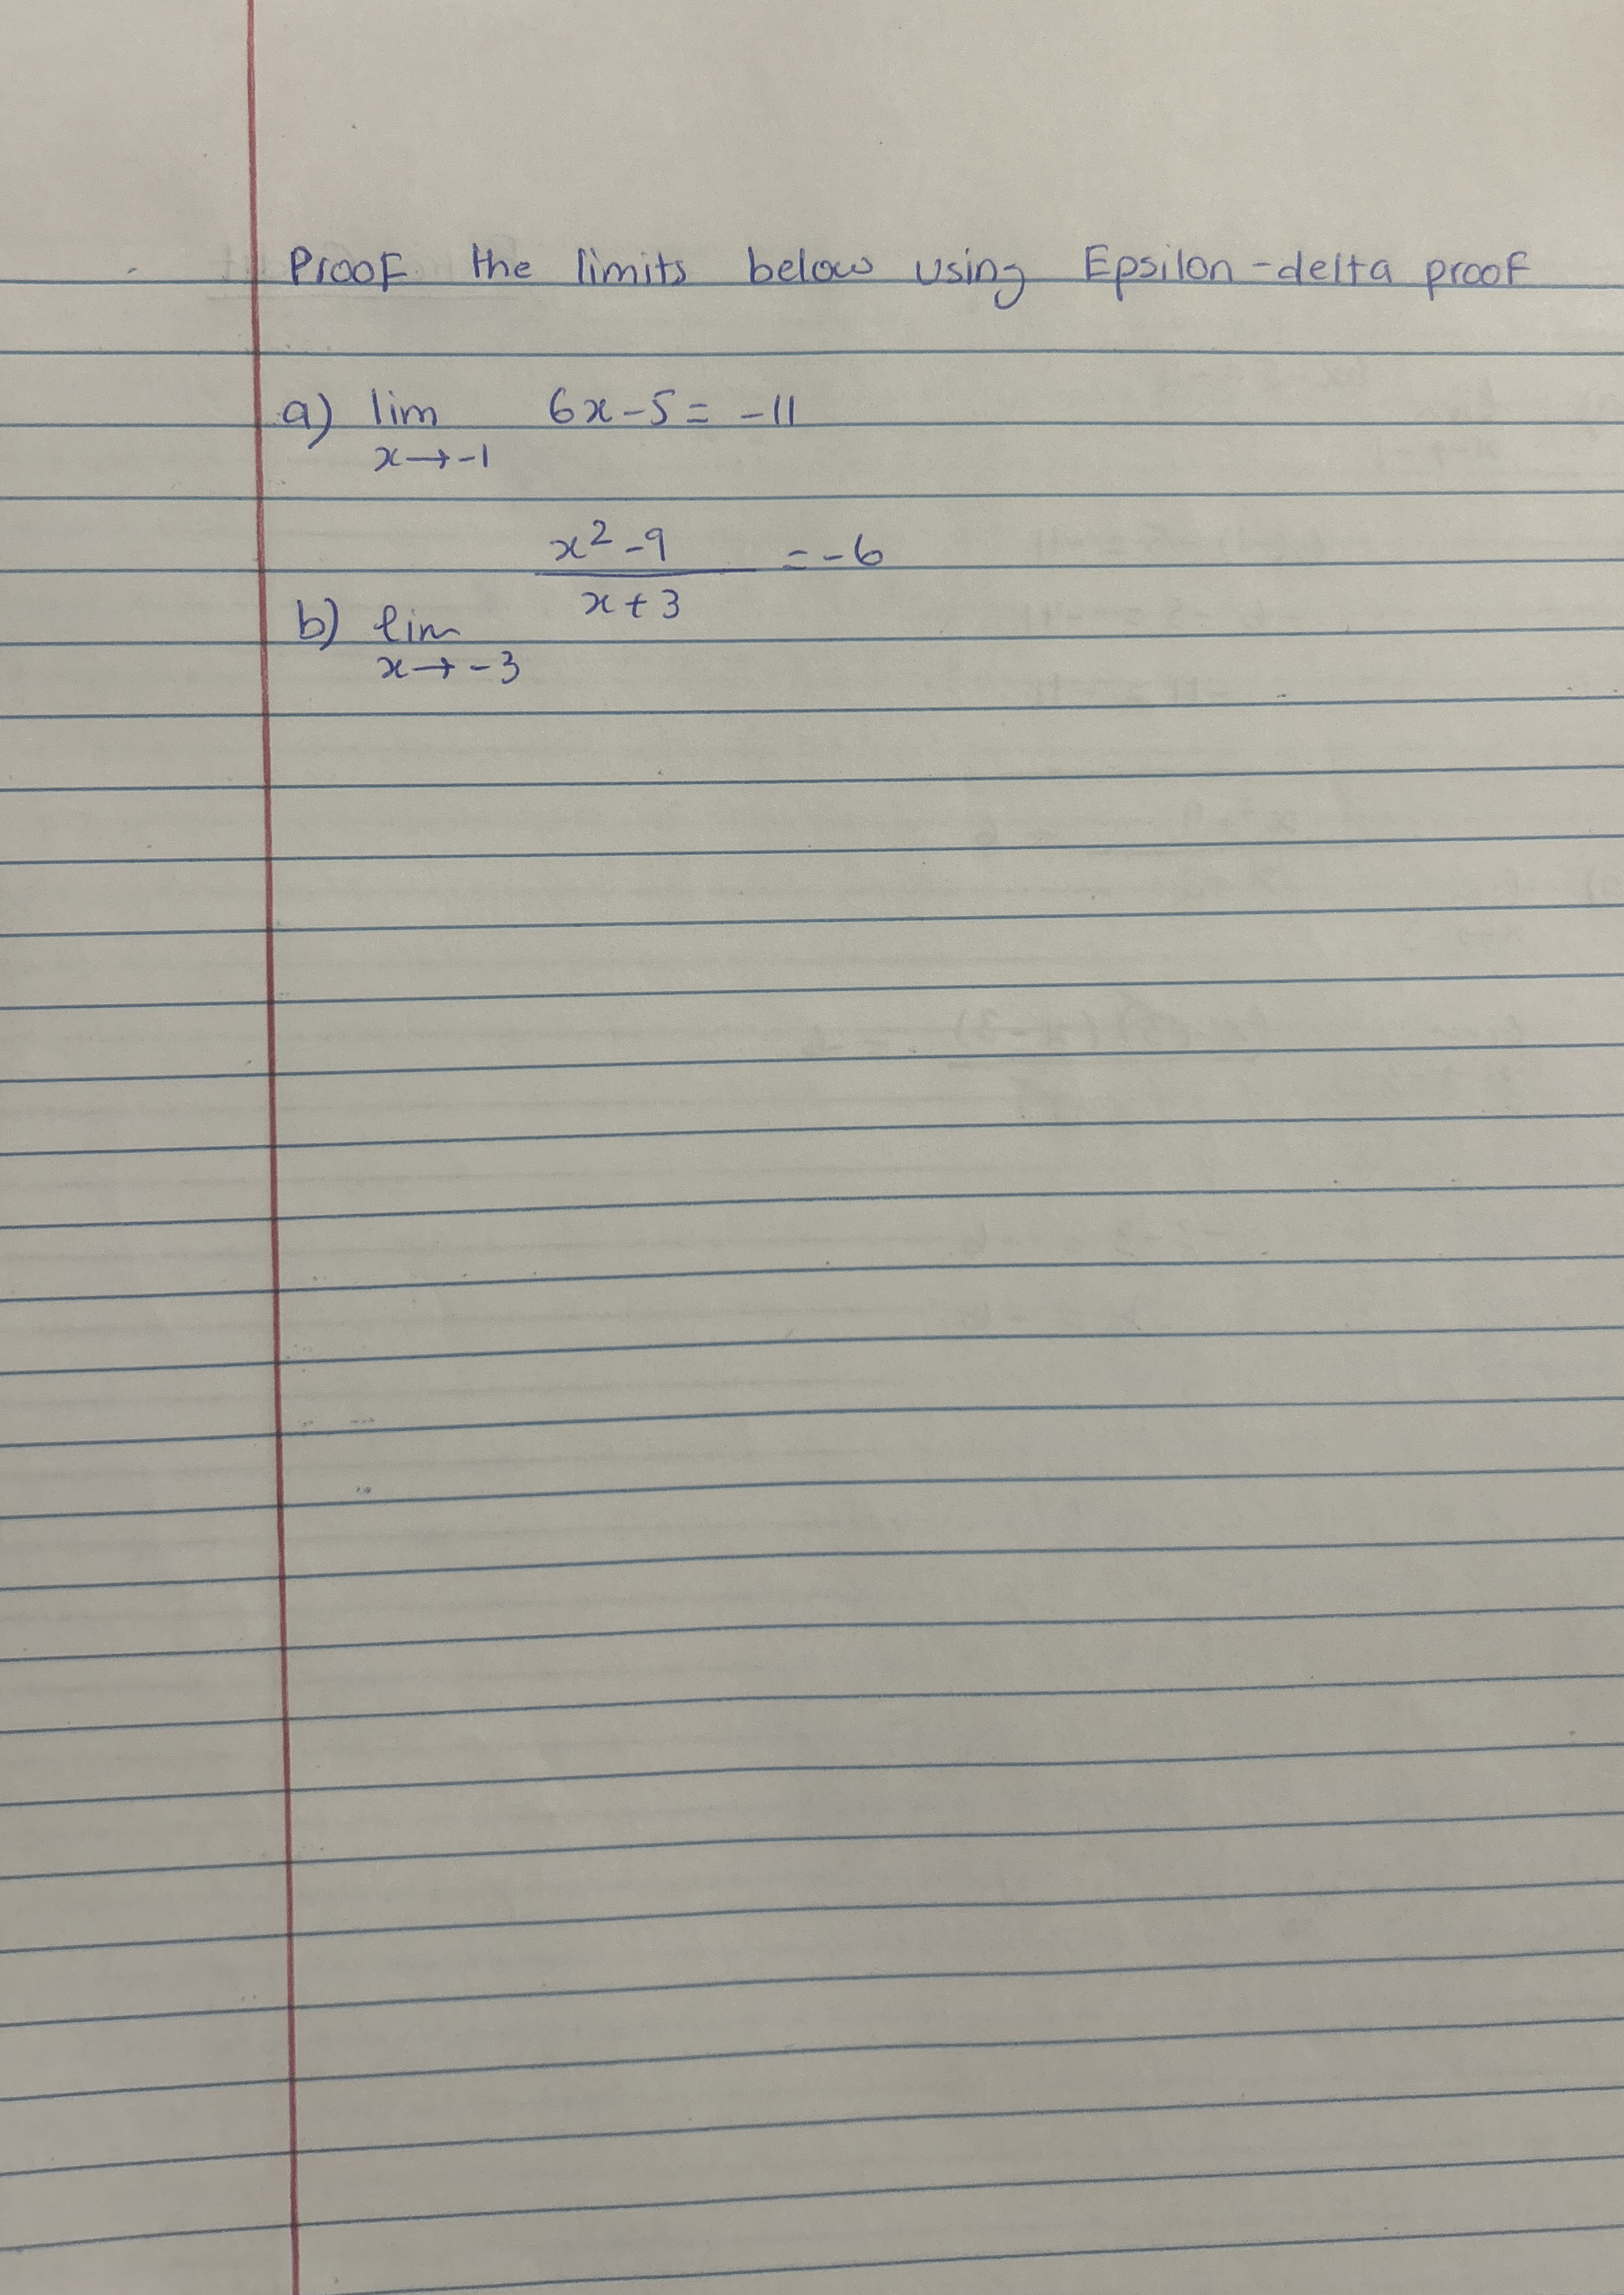 Proof the limits below using Epsilon-delta proof
a) lim 6x-5 = -11
x→-1
x²-9 = -6
x+3
b) lim
x→-3